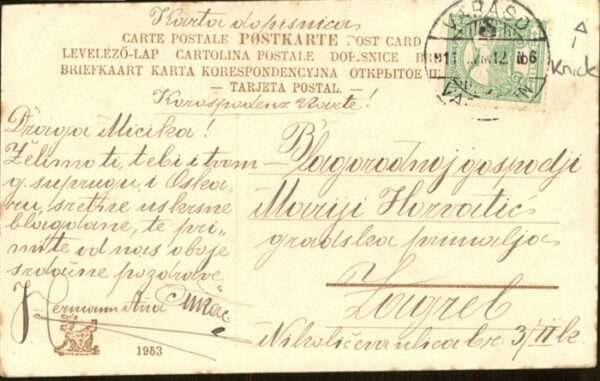 Karta dopisnica
CARTE POSTALE POSTKARTE POST CARD
LEVELEZŐ-LAP CARTOLINA POSTALE DOPISNICE
BRIEFKAART KARTA KORESPONDENCYJNA ОТКРЫТОЕ
— TARJETA POSTAL. —
Korespodenz Karte!
VARAŽD
Knick
Draga Micika!
Želimo ti, tebi i tvom
g. suprugu, i Oska-
ru, sretne uskrsne
blagdane, te pri-
mite od nas oboje
srdačne pozdrave
Hermann Ana
1953
Blagorodnoj gospodji
Mariji Horvatić
gradska primalja
Zagreb
Nikolićeva ulica br. 3/II k.